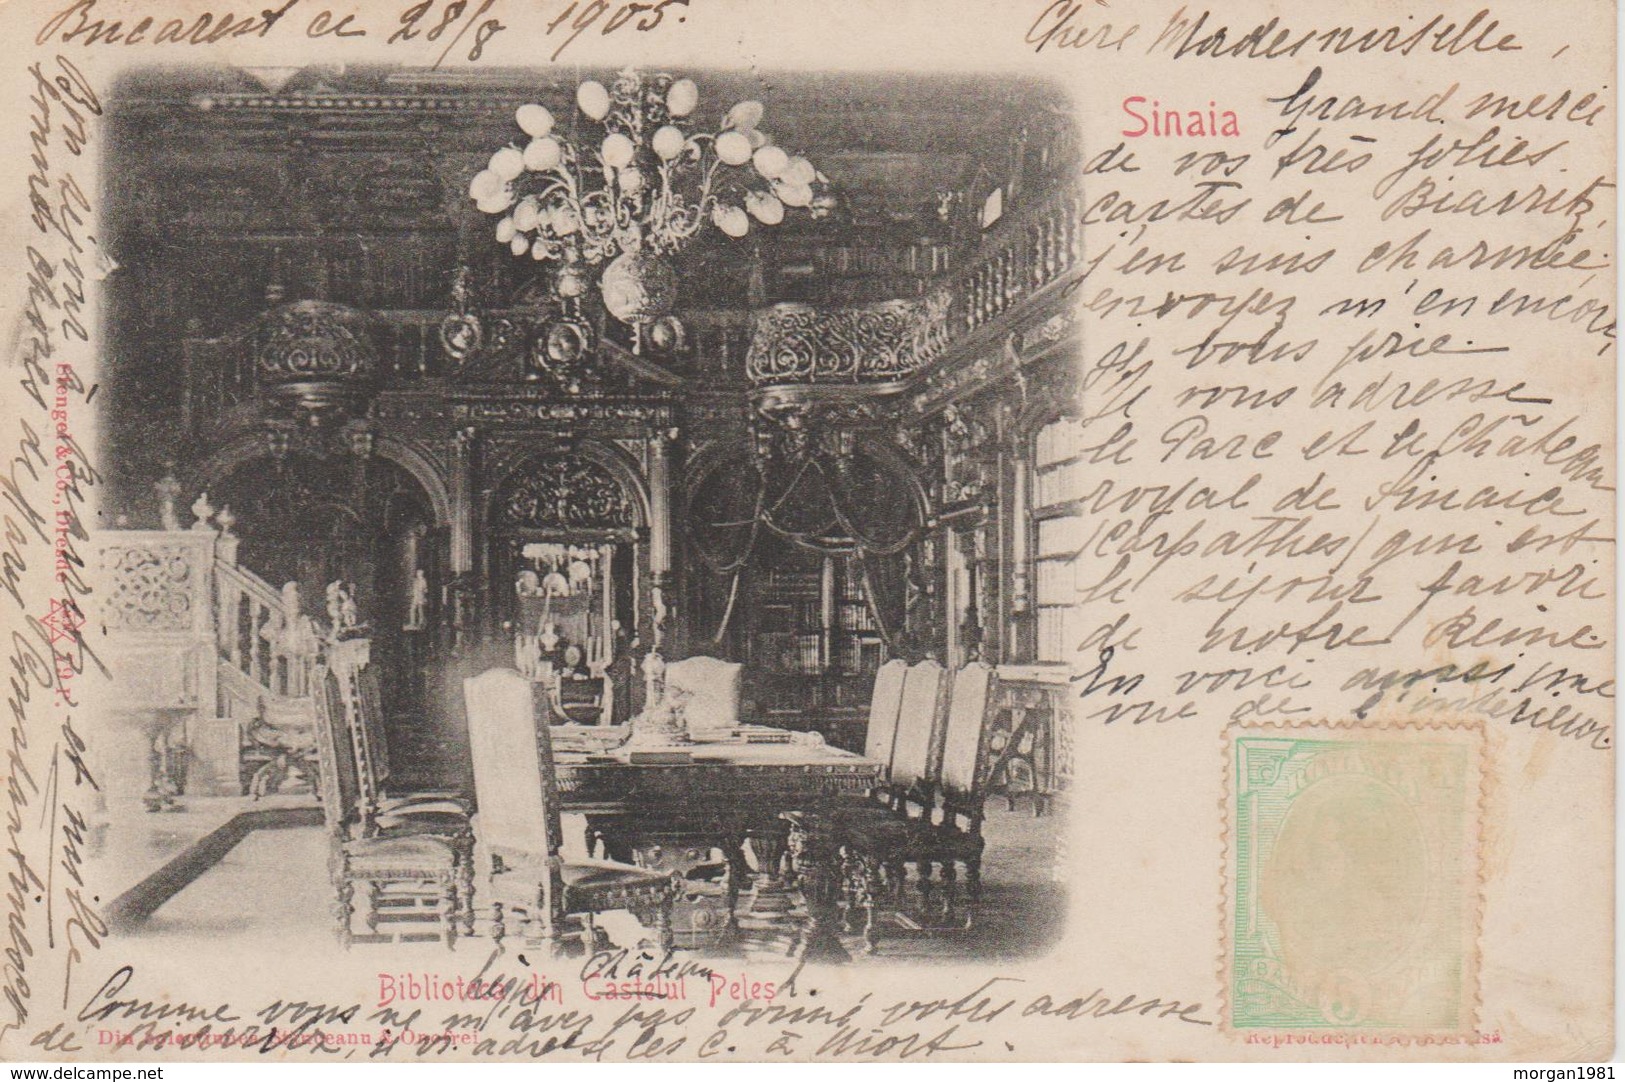 Bucarest ce 28/8 1905.
Chère Mademoiselle,
Sinaia
Grand merci
de vos très jolies
cartes de Biarritz,
j'en suis charmée,
envoyez m'en encore,
vous prie.
Je vous adresse
le Parc et le Château
royal de Sinaia
(Carpathes) qui est
le séjour favori
de notre Reine.
En voici aussi une
vue de l'intérieur.
Bon séjour à Biarritz et mille
bonnes choses de Mary Constantinescu
Stengel & Co., Dresde
Château
Biblioteca din Castelul Peleș
Comme vous ne m'avez pas donné votre adresse
de Biarritz, je v. adresse les c. à Niort.
Din Colecțiunea Stănceanu & Onofrei
Reproducțiunea interzisă
BANI 5
www.delcampe.net
morgan1981